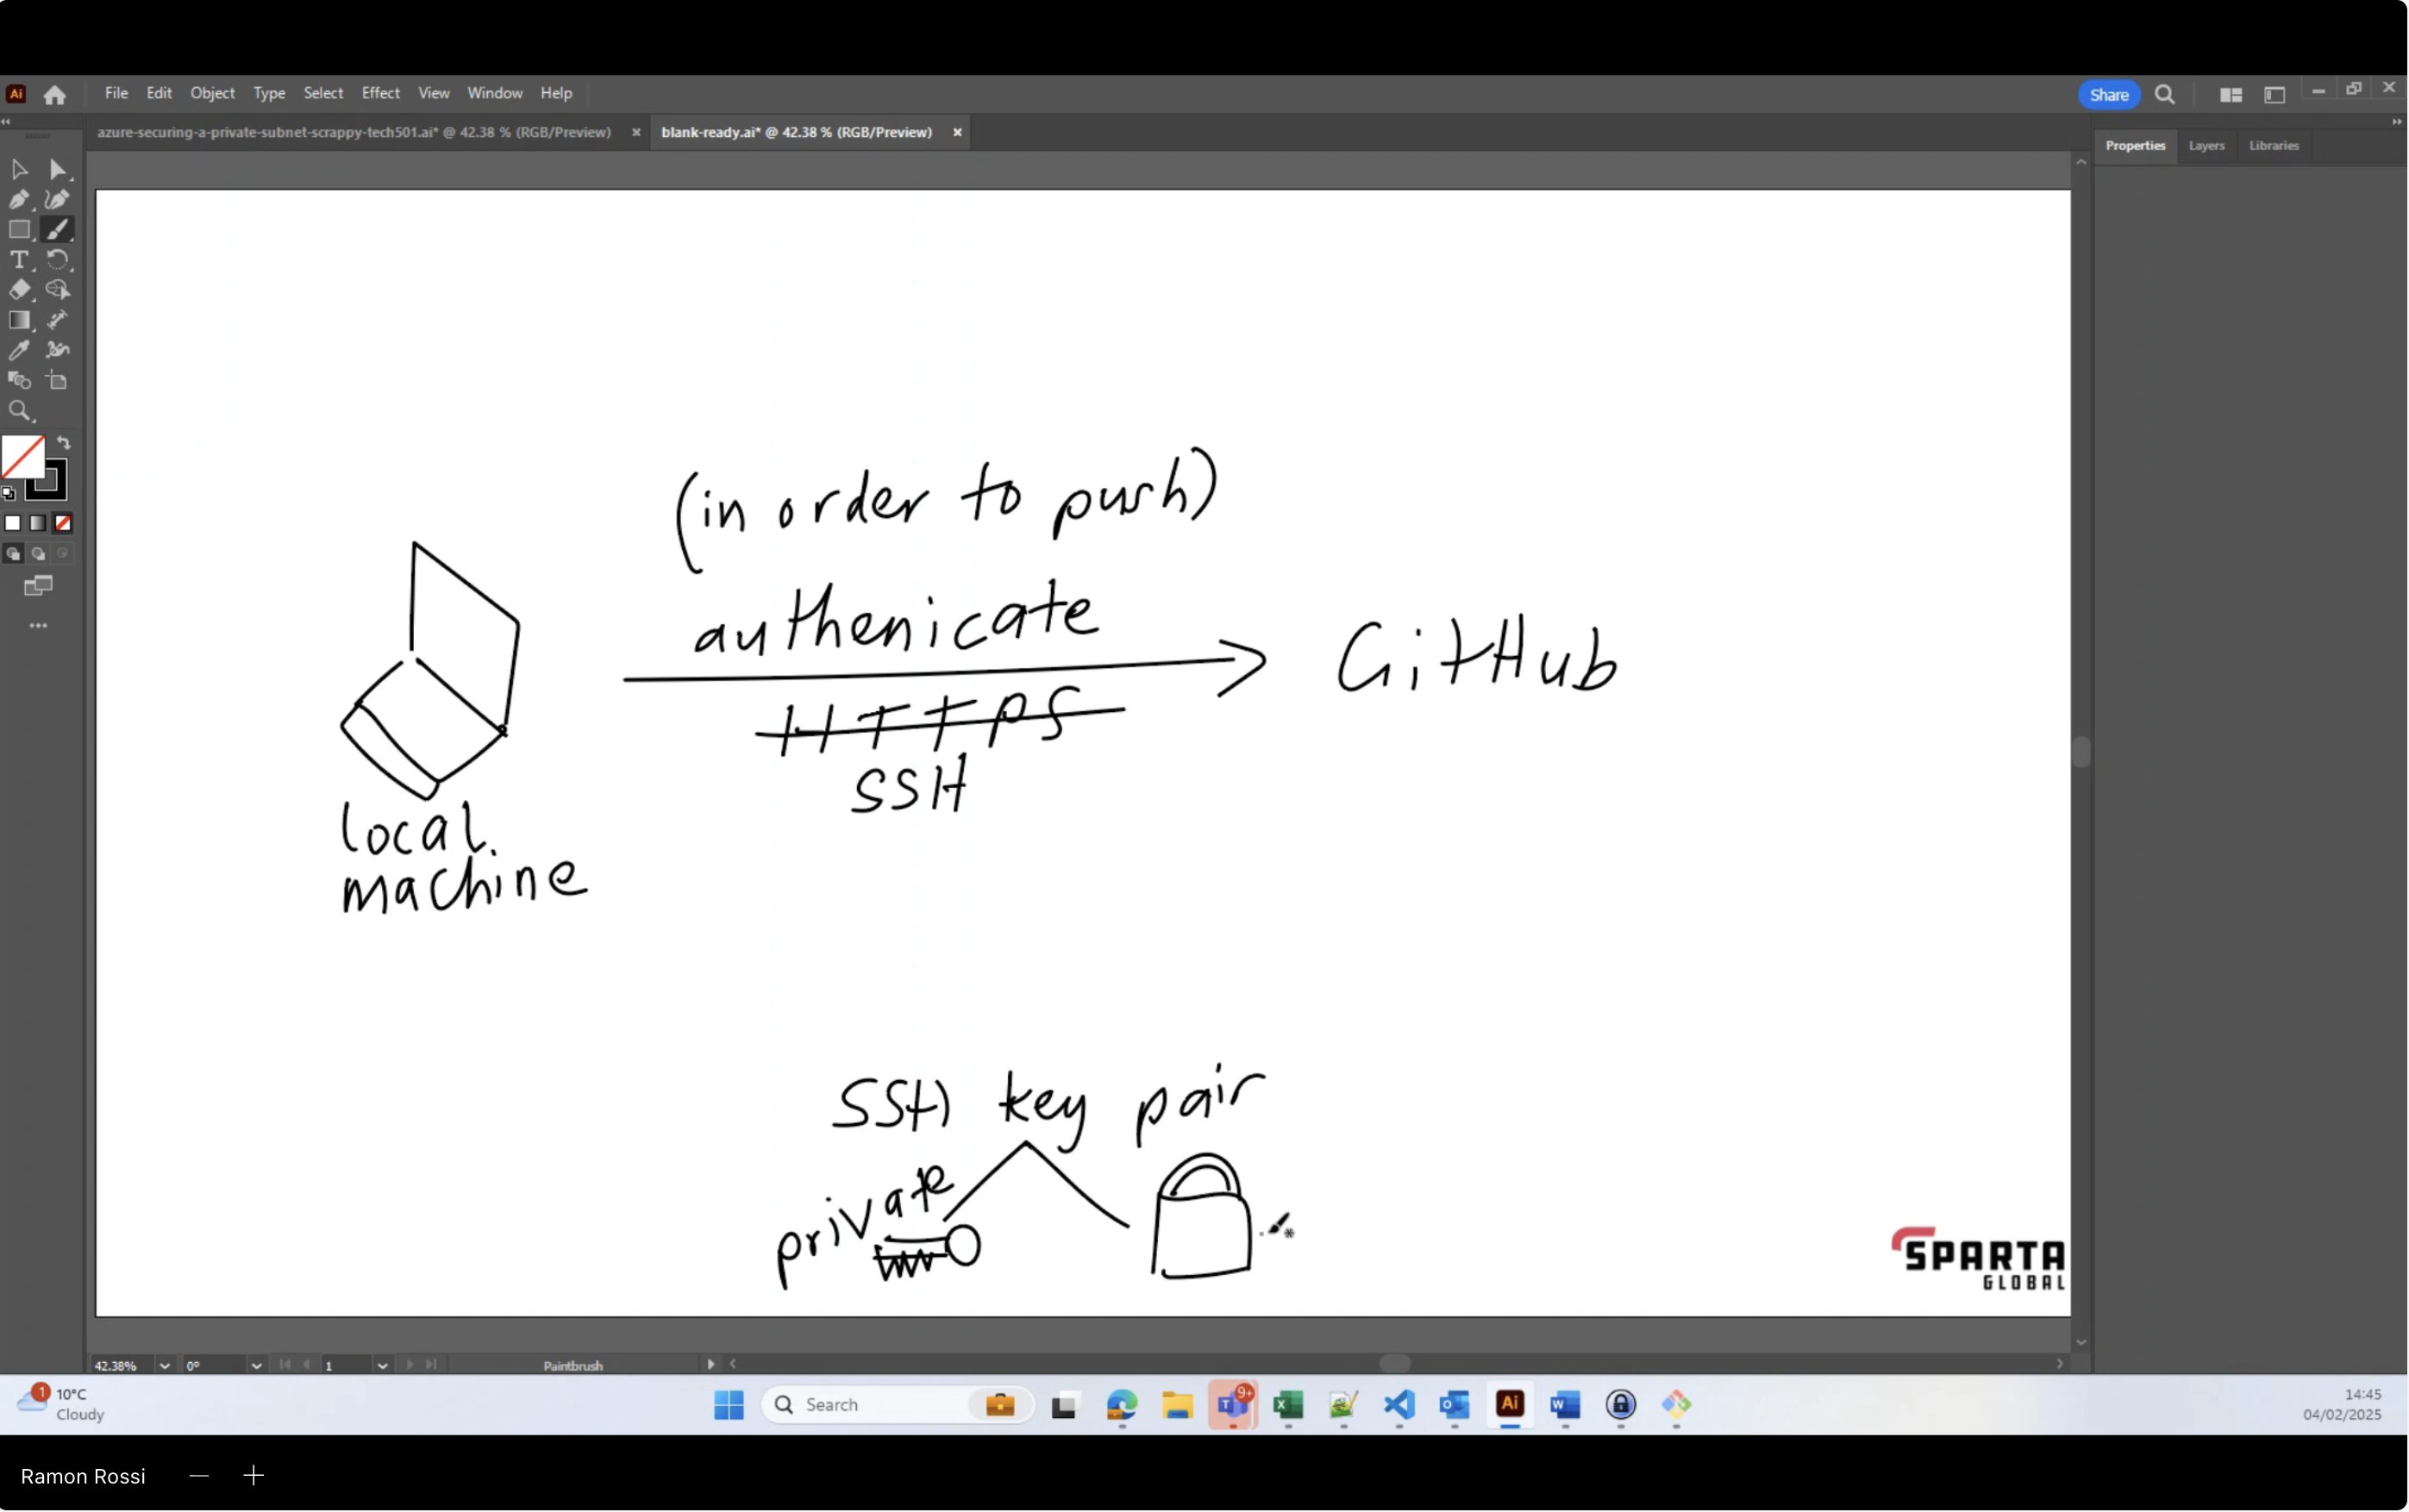 File Edit Object Type Select Effect View Window Help
Share
azure-securing-a-private-subnet-scrappy-tech501.ai* @ 42.38 % (RGB/Preview)
blank-ready.ai* @ 42.38 % (RGB/Preview)
Properties Layers Libraries
(in order to push)
authenicate
GitHub
HTTPS
SSH
local
machine
SSH key pair
private
SPARTA
GLOBAL
42.38% 0° 1 Paintbrush
1
10°C
Cloudy
Search
9+
14:45
04/02/2025
Ramon Rossi